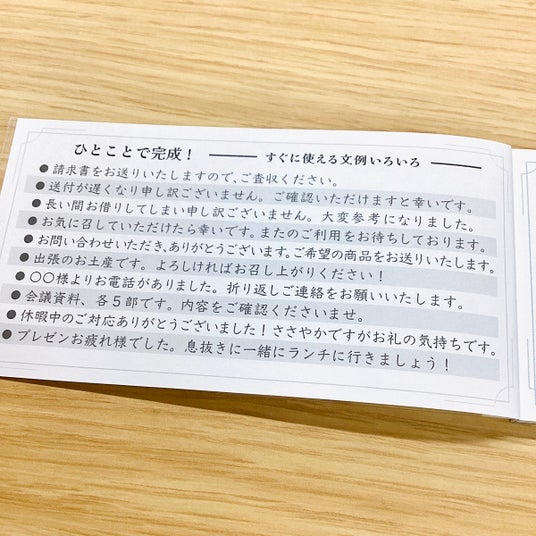 ひとことで完成！ すぐに使える文例いろいろ
●請求書をお送りいたしますので、ご査収ください。
●送付が遅くなり申し訳ございません。ご確認いただけますと幸いです。
●長い間お借りしてしまい申し訳ございません。大変参考になりました。
●お気に召していただけたら幸いです。またのご利用をお待ちしております。
●お問い合わせいただき、ありがとうございます。ご希望の商品をお送りいたします。
●出張のお土産です。よろしければお召し上がりください！
●〇〇様よりお電話がありました。折り返しご連絡をお願いいたします。
●会議資料、各５部です。内容をご確認くださいませ。
●休暇中のご対応ありがとうございました！ささやかですがお礼の気持ちです。
●プレゼンお疲れ様でした。息抜きに一緒にランチに行きましょう！